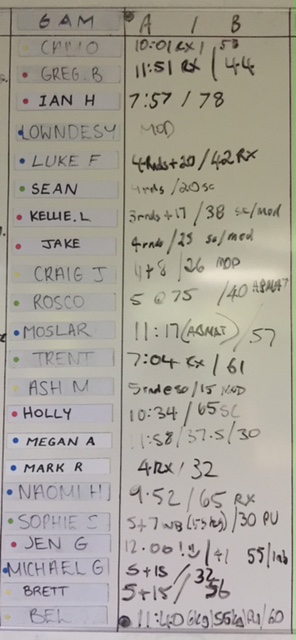 6 AM A / B
CHIMO 10:01 RX / 53
GREG.B 11:51 RX / 44
IAN H 7:57 / 78
LOWNDESY MOD
LUKE F 4rnds+20 / 42 RX
SEAN 4rnds / 20 sc
KELLIE.L 3rnds+17 / 38 sc/mod
JAKE 4rnds / 25 sc/mod
CRAIG J 4+8 / 26 MOD
ROSCO 5 @ 75 / 40 ABMAT
MOSLAR 11:17 (ABMAT) / 57
TRENT 7:04 RX / 61
ASH M 5 / 15 MOD
HOLLY 10:34 / 65 SC
MEGAN A 11:58 / 37.5 / 30
MARK R 4RX / 32
NAOMI H 9:52 / 65 RX
SOPHIE S 5+7 / 30 PU
JEN G 12:00 / 41 55
MICHAEL G 5+15 / 32
BRETT 5+15 / 56
BEL 11:40 6kg / 55kg / Rx / 60